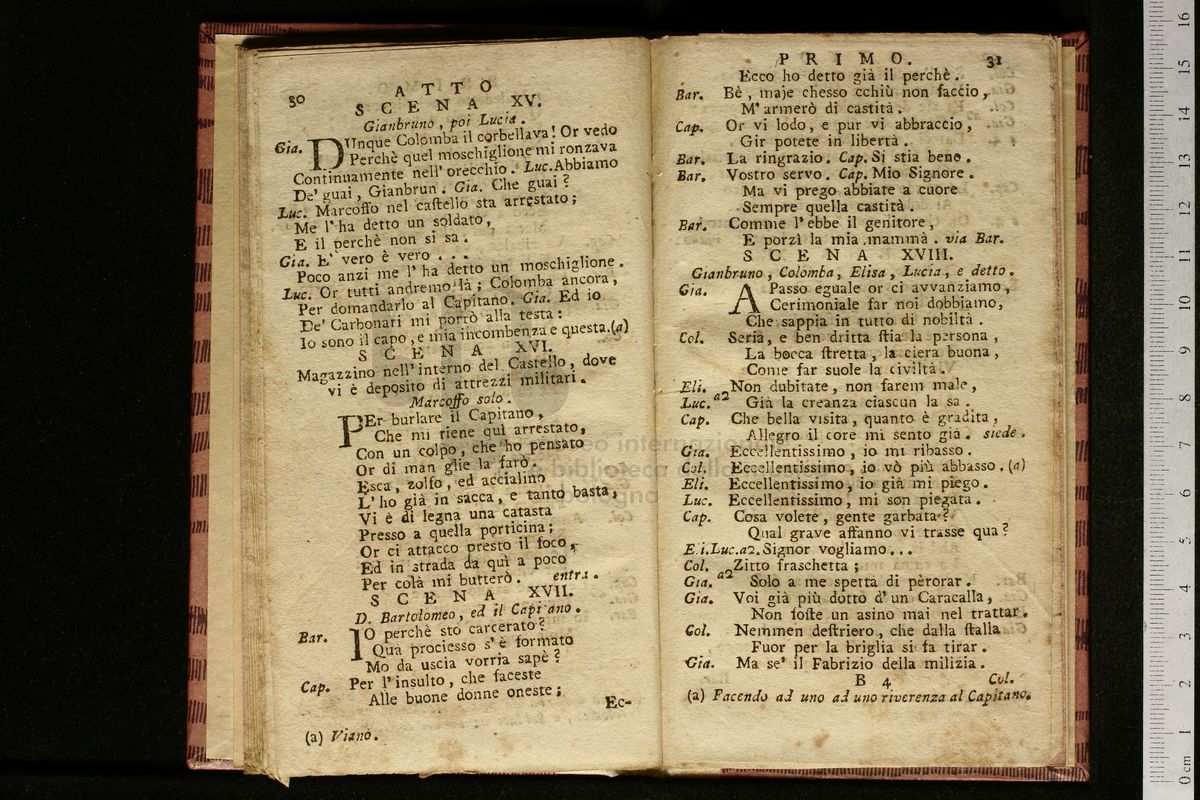 30
ATTO
SCENA XV.
Gianbruno, poi Lucia.
Gia. DUnque Colomba il corbellava! Or vedo
Perchè quel moschiglione mi ronzava
Continuamente nell' orecchio. Luc. Abbiamo
De' guai, Gianbrun. Gia. Che guai?
Luc. Marcoffo nel castello sta arrestato;
Me l' ha detto un soldato,
E il perchè non si sa.
Gia. E' vero è vero...
Poco anzi me l' ha detto un moschiglione.
Luc. Or tutti andremo là; Colomba ancora,
Per domandarlo al Capitano. Gia. Ed io
De' Carbonari mi porrò alla testa:
Io sono il capo, e mia incombenza e questa.(a)
SCENA XVI.
Magazzino nell' interno del Castello, dove
vi è deposito di attrezzi militari.
Marcoffo solo.
PEr burlare il Capitano,
Che mi tiene quì arrestato,
Con un colpo, che ho pensato
Or di man glie la farò.
Esca, zolfo, ed accialino
L' ho già in sacca, e tanto basta,
Vi è di legna una catasta
Presso a quella porticina;
Or ci attacco presto il foco,
Ed in strada da quì a poco
Per colà mi butterò. entra.
SCENA XVII.
D. Bartolomeo, ed il Capitano.
Bar. IO perchè sto carcerato?
Qua prociesso s' è formato
Mo da uscia vorria sapè?
Cap. Per l' insulto, che faceste
Alle buone donne oneste;
Ec-
(a) Viano.
PRIMO. 31
Ecco ho detto già il perchè.
Bar. Bè, maje chesso cchiù non faccio,
M' armerò di castità.
Cap. Or vi lodo, e pur vi abbraccio,
Gir potete in libertà.
Bar. La ringrazio. Cap. Si stia bene.
Bar. Vostro servo. Cap. Mio Signore.
Ma vi prego abbiate a cuore
Sempre quella castità.
Bar. Comme l' ebbe il genitore,
E porzì la mia mammà. via Bar.
SCENA XVIII.
Gianbruno, Colomba, Elisa, Lucia, e detto.
Gia. A Passo eguale or ci avvanziamo,
Cerimoniale far noi dobbiamo,
Che sappia in tutto di nobiltà.
Col. Seria, e ben dritta stia la persona,
La bocca stretta, la ciera buona,
Come far suole la civiltà.
Eli. Non dubitate, non farem male,
Luc. a2 Già la creanza ciascun la sa.
Cap. Che bella visita, quanto è gradita,
Allegro il core mi sento già. siede.
Gia. Eccellentissimo, io mi ribasso.
Col. Eccellentissimo, io vò più abbasso.(a)
Eli. Eccellentissimo, io già mi piego.
Luc. Eccellentissimo, mi son piegata.
Cap. Cosa volete, gente garbata?
Qual grave affanno vi trasse qua?
Eli.Luc.a2. Signor vogliamo...
Col. Zitto fraschetta;
Gia. a2 Solo a me spetta di pèrorar.
Gia. Voi già più dotto d' un Caracalla,
Non foste un asino mai nel trattar.
Col. Nemmen destriero, che dalla stalla
Fuor per la briglia si fa tirar.
Gia. Ma se' il Fabrizio della milizia.
B 4 Col.
(a) Facendo ad uno ad uno riverenza al Capitano.